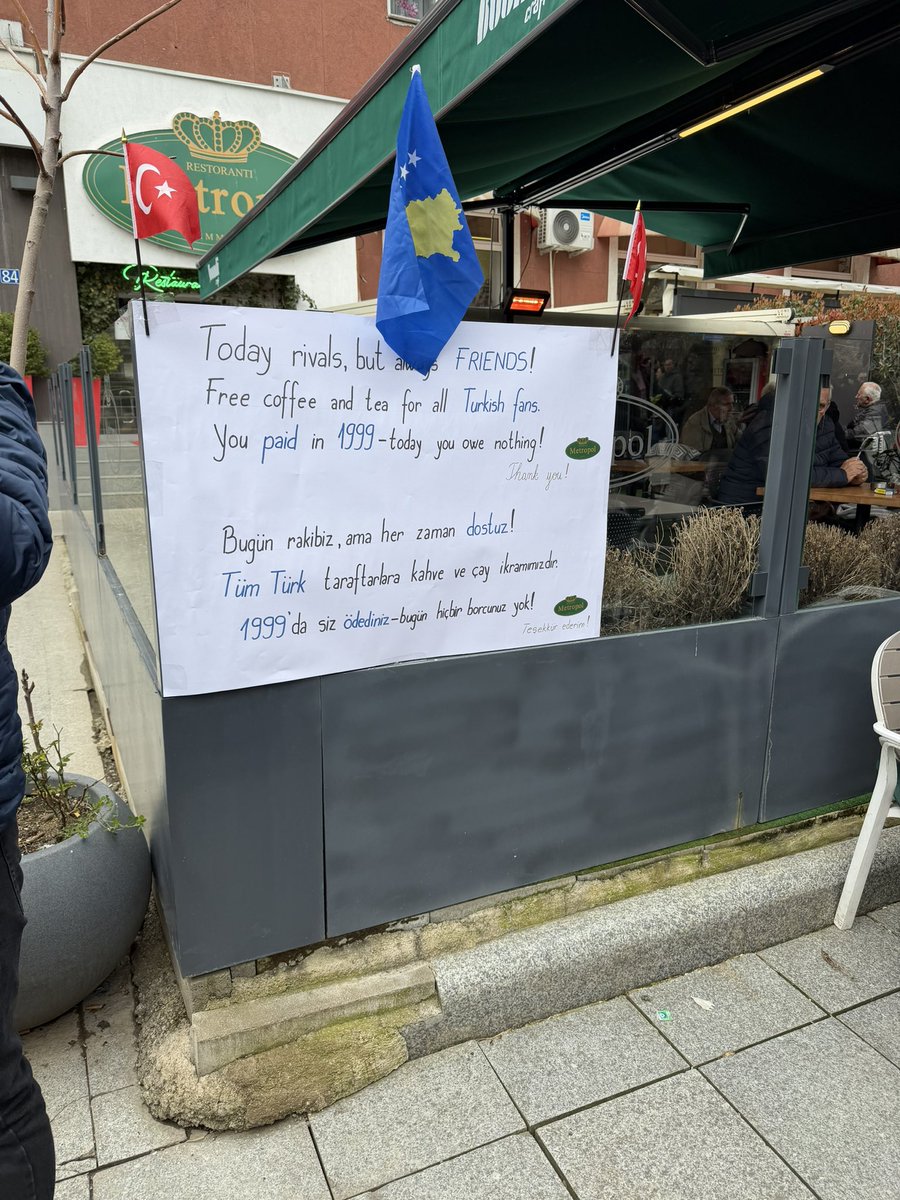 RESTORANTI
84
Today rivals, but always FRIENDS!
Free coffee and tea for all Turkish fans.
You paid in 1999-today you owe nothing!
Metropol
Thank you!
Bugün rakibiz, ama her zaman dostuz!
Tüm Türk taraftarlara kahve ve çay ikramımızdır.
1999'da siz ödediniz-bugün hiçbir borcunuz yok!
Metropol
Teşekkür ederim!